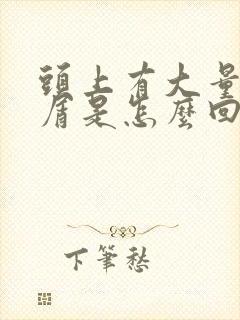 頭上有大量
屑是怎麼回
下筆愁